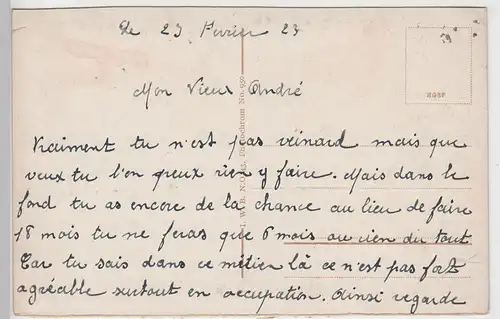 le 23 Février 23
Mon Vieux André
Vraiment tu n'est pas veinard mais que
veux tu l'on n'peux rien y faire. Mais dans le
fond tu as encore de la chance au lieu de faire
18 mois tu ne feras que 6 mois ou rien du tout
Car tu sais dans ce métier là ce n'est pas fort
agréable surtout en occupation. Ainsi regarde
Photochrom No. 950